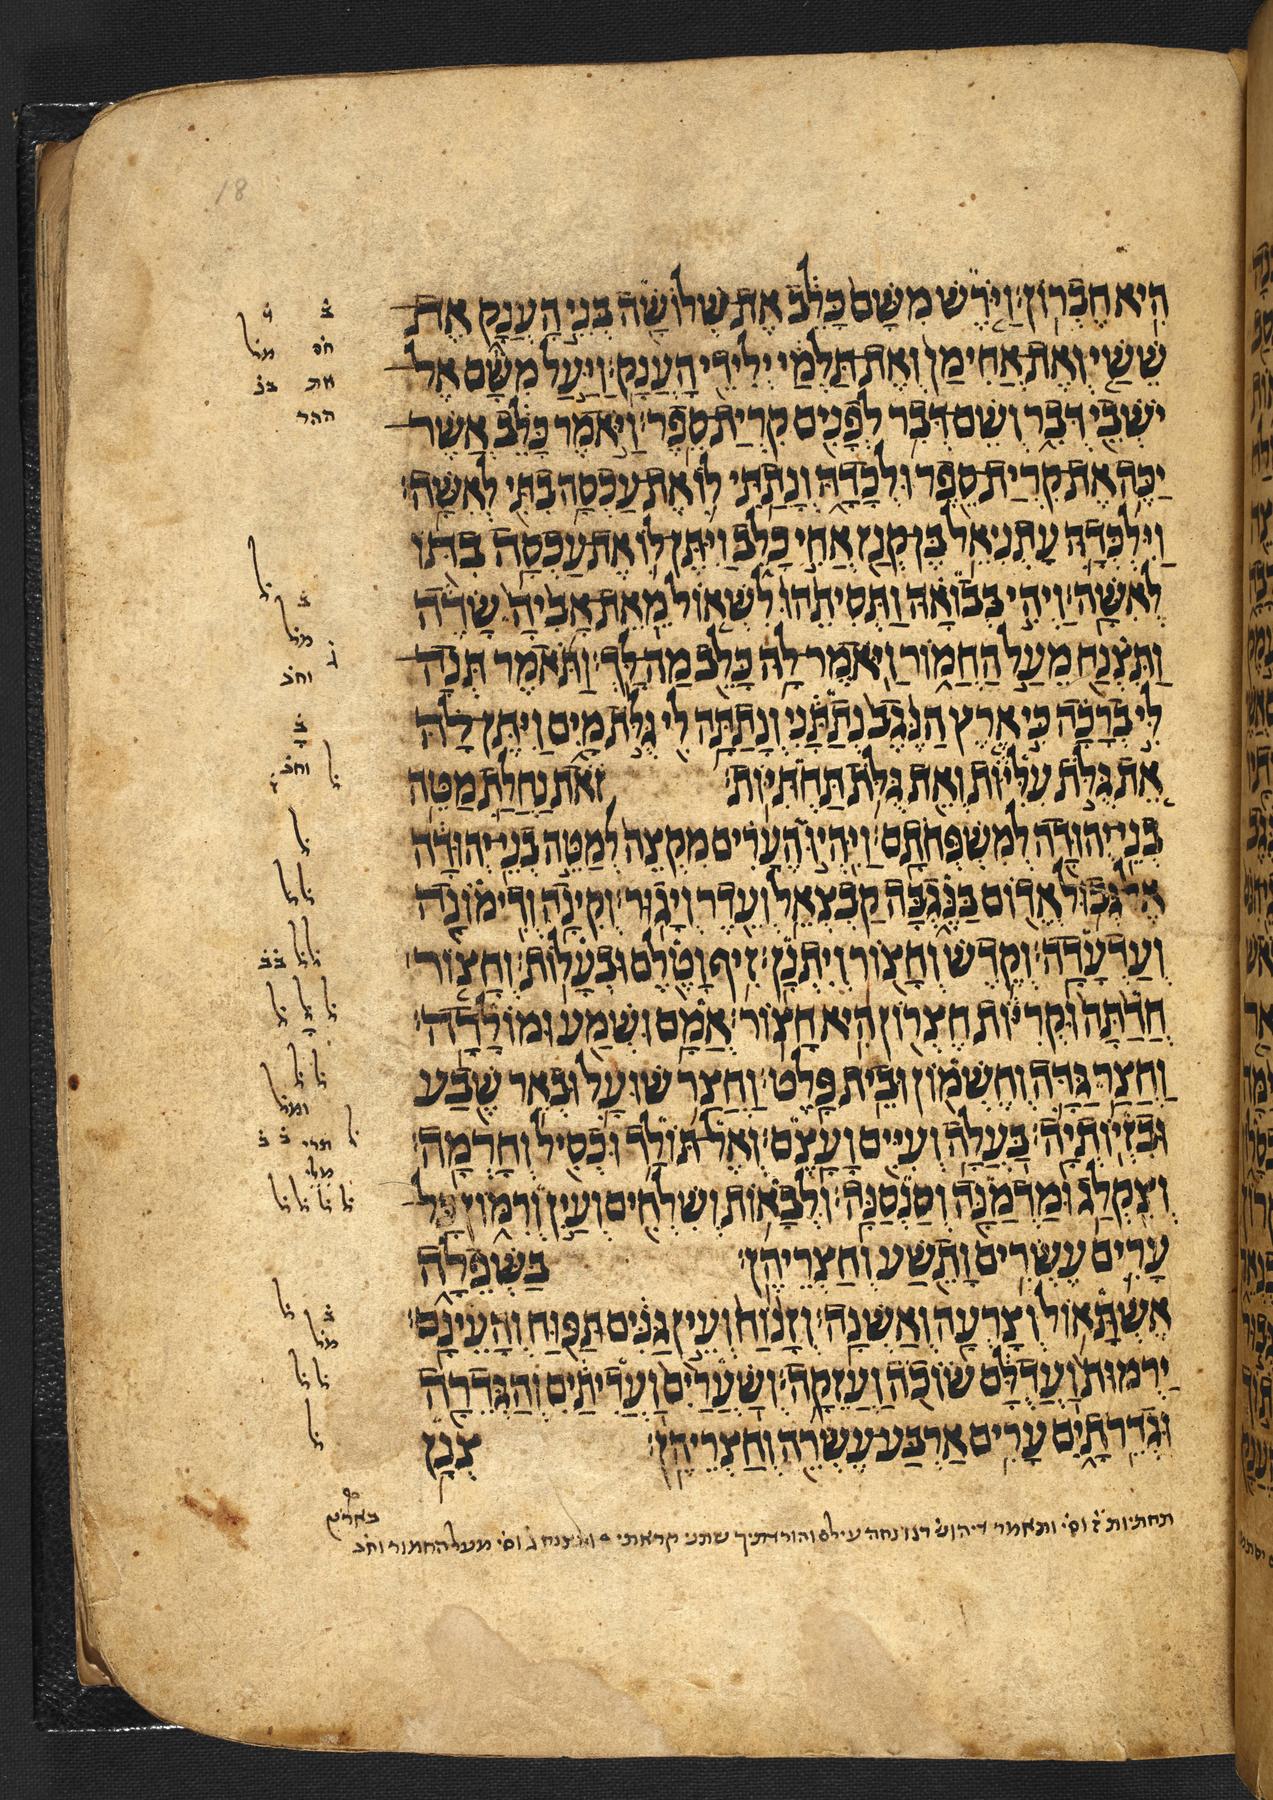 18
היא חברון׃ וירש משם כלב את שלושה בני הענק את
ששי ואת אחימן ואת תלמי ילידי הענק׃ ויעל משם אל
ישבי דבר ושם דבר לפנים קרית ספר׃ ויאמר כלב אשר
יכה את קרית ספר ולכדה ונתתי לו את עכסה בתי לאשה׃
וילכדה עתניאל בן קנז אחי כלב ויתן לו את עכסה בתו
לאשה׃ ויהי בבואה ותסיתהו לשאול מאת אביה שדה
ותצנח מעל החמור ויאמר לה כלב מה לך׃ ותאמר תנה
לי ברכה כי ארץ הנגב נתתני ונתתה לי גלת מים ויתן לה
את גלת עליות ואת גלת תחתיות׃ זאת נחלת מטה
בני יהודה למשפחתם׃ ויהיו הערים מקצה למטה בני יהודה
אל גבול אדום בנגבה קבצאל ועדר ויגור׃ וקינה ודימונה
ועדעדה׃ וקדש וחצור ויתנן׃ זיף וטלם ובעלות׃ וחצור
חדתה וקריות חצרון היא חצור׃ אמם ושמע ומולדה׃
וחצר גדה וחשמון ובית פלט׃ וחצר שועל ובאר שבע
ובזיותיה׃ בעלה ועיים ועצם׃ ואלתולד וכסיל וחרמה׃
וצקלג ומדמנה וסנסנה׃ ולבאות ושלחים ועין ורמון כל
ערים עשרים ותשע וחצריהן׃ בשפלה
אשתאול וצרעה ואשנה׃ וזנוח ועין גנים תפוח והעינם׃
ירמות ועדלם שוכה ועזקה׃ ושערים ועדיתים והגדרה
וגדרתים ערים ארבע עשרה וחצריהן׃ צנן